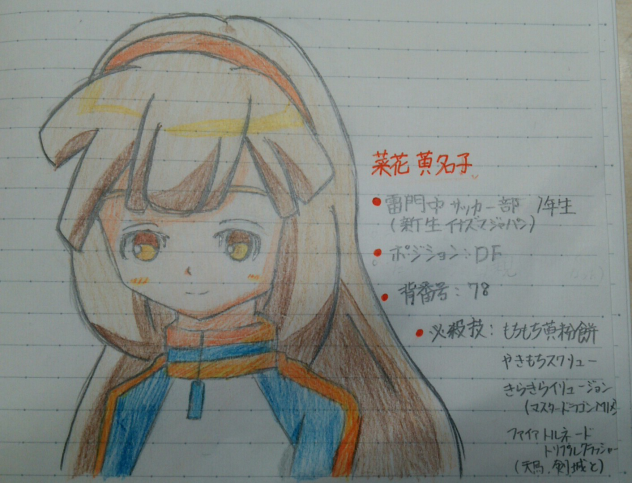 菜花 黄名子
• 雷門中 サッカー部 1年生
(新生イナズマジャパン)
• ポジション: DF
• 背番号: 78
• 必殺技: もちもち黄粉餅
やきもちスクリュー
きらきらイリュージョン
(マスタードラゴンMIX)
ファイアトルネード
トリプルクラッシャー
(天馬、剣城と)